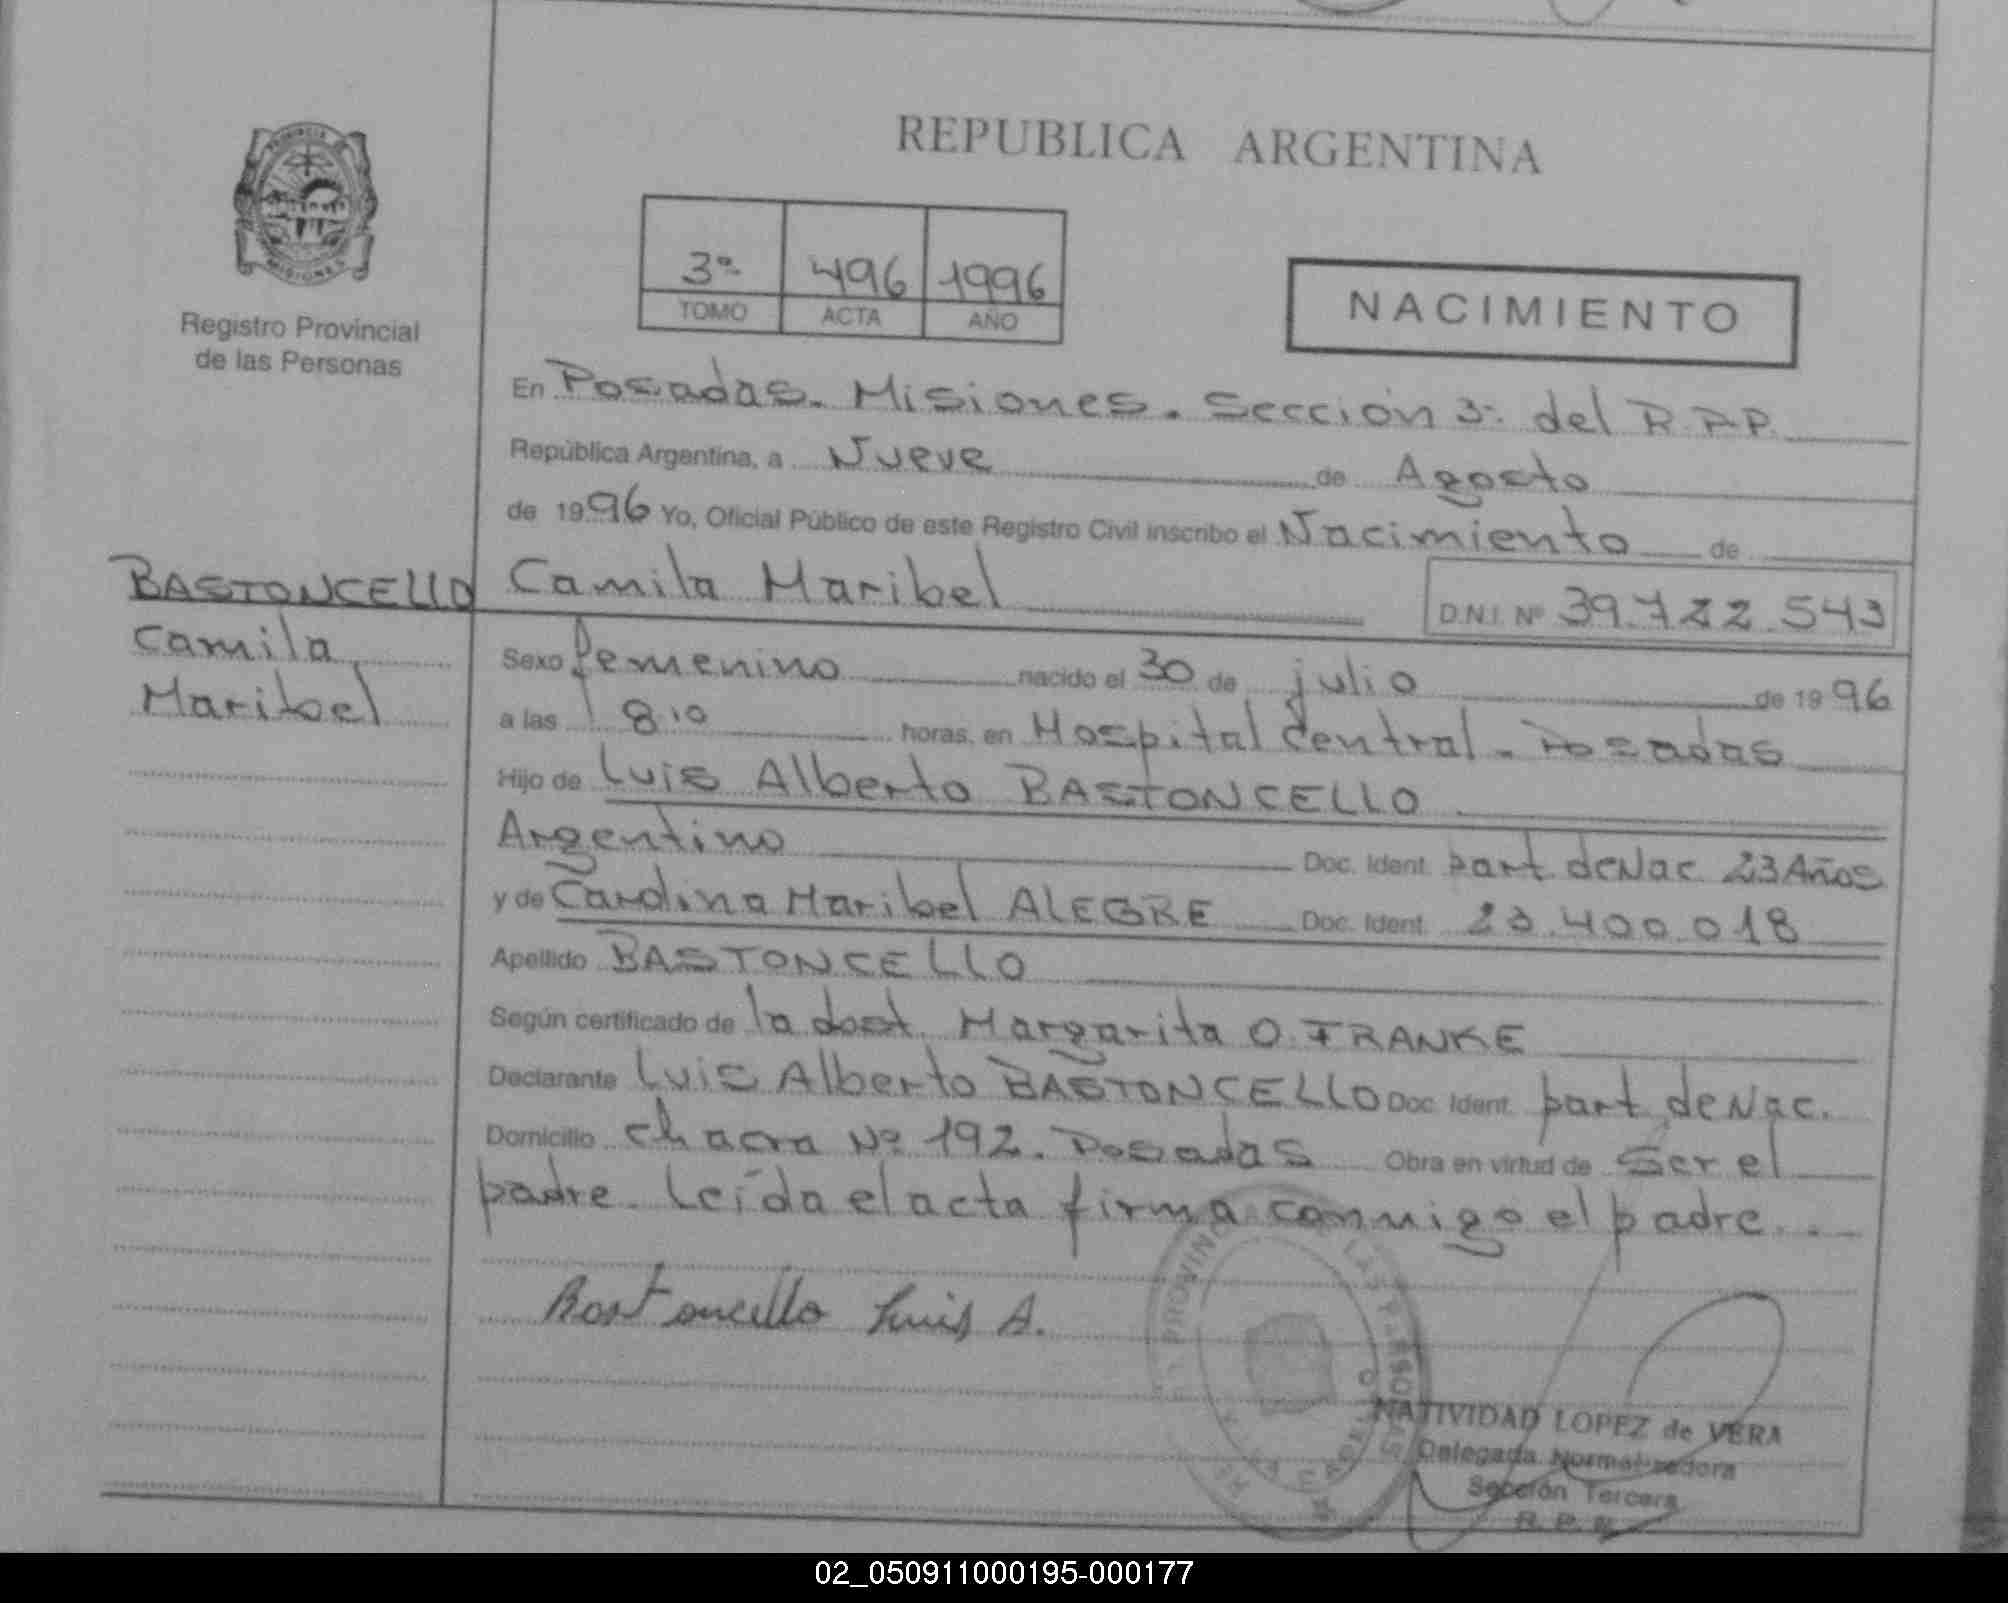 REPUBLICA ARGENTINA
PROVINCIA DE
MISIONES
Registro Provincial
de las Personas
3ª 496 1996
TOMO ACTA AÑO
NACIMIENTO
En Posadas. Misiones. Sección 3: del R.P.P.
República Argentina, a Nueve de Agosto
de 1996 Yo, Oficial Público de este Registro Civil inscribo el Nacimiento de
BASTONCELLO
Camila
Maribel
Camila Maribel D.N.I. Nº 39.722.543
Sexo femenino nacido el 30 de julio de 1996
a las 18,10 horas, en Hospital Central - Posadas
Hijo de Luis Alberto BASTONCELLO
Argentino Doc. Ident. part. de Nac. 23 Años
y de Carolina Maribel ALEGRE Doc. Ident. 23.400.018
Apellido BASTONCELLO
Según certificado de la doct. Margarita O. FRANKE
Declarante Luis Alberto BASTONCELLO Doc. Ident. part. de Nac.
Domicilio chacra Nº 192. Posadas Obra en virtud de Ser el
padre. Leída el acta firma conmigo el padre.
Bastoncello Luis A.
PROVINCIAL DE LAS PERSONAS
NATIVIDAD LOPEZ de VERA
Delegada Normalizadora
Sección Tercera
R. P. P.
02_050911000195-000177